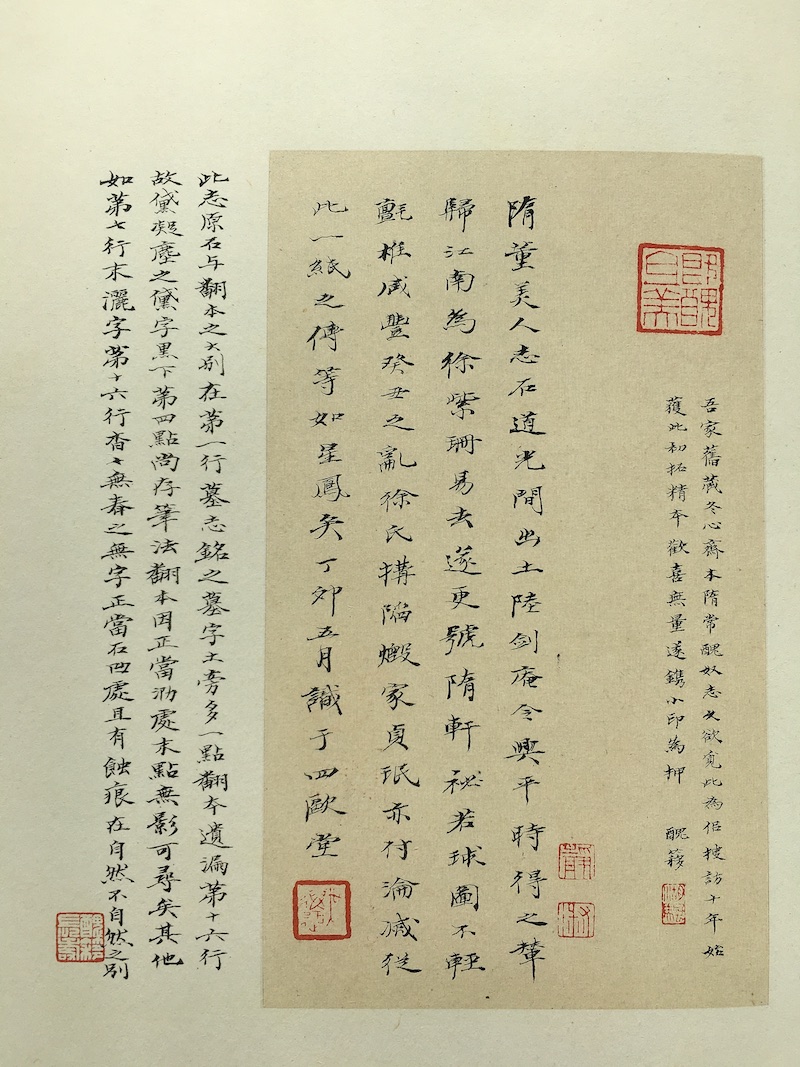 吾家舊藏冬心齋本隋常醜奴志久欲覓此為侶搜訪十年始
獲此初拓精本歡喜無量遂鐫小印為押　醜簃
隋董美人志石道光間出土陸劍庵令興平時得之輦
歸江南為徐紫珊易去遂更號隋軒祕若球圖不輕
氈椎咸豐癸丑之亂徐氏搆陷燬家貞珉亦付淪滅從
此一紙之傳等如星鳳矣丁卯五月識于四歐堂
此志原石与翻本之大別在第一行墓志銘之墓字土旁多一點翻本遺漏第十六行
故黛凝塵之黛字黑下第四點尚存筆法翻本因正當泐處末點無影可尋矣其他
如第七行末灑字第十六行杳〻無春之無字正當石凹處且有蝕痕在自然不自然之別